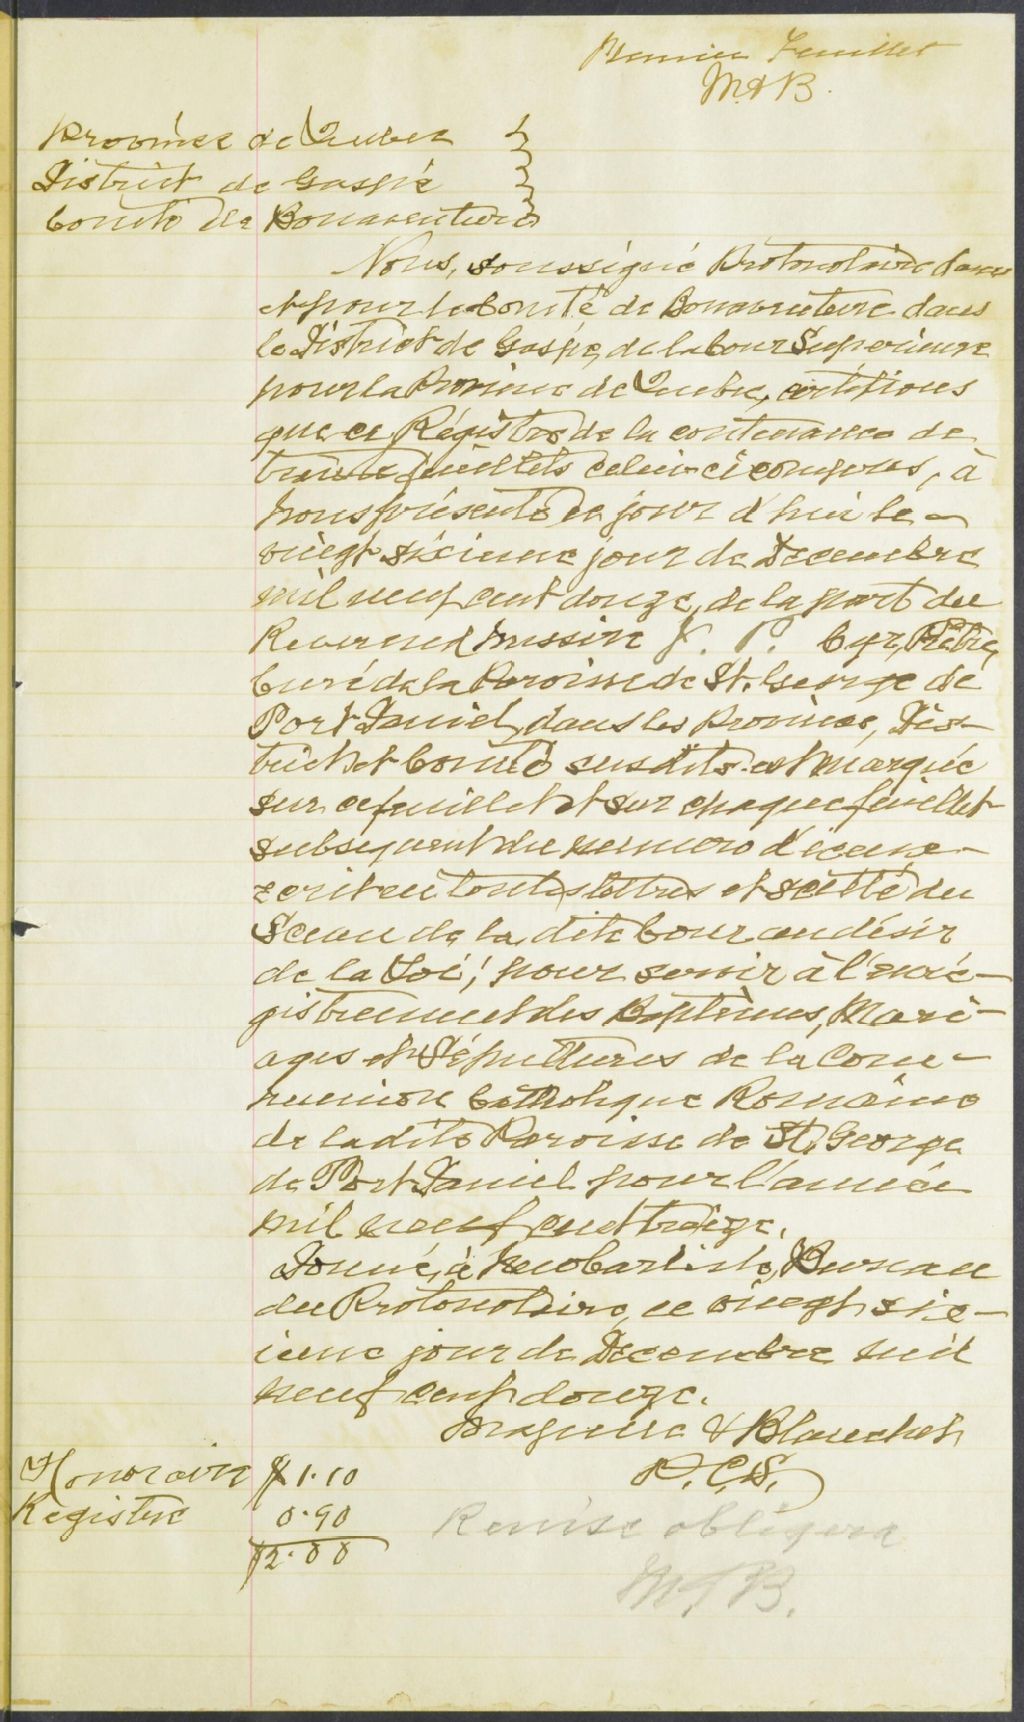 Premier Feuillet
M & B.
Province de Québec
District de Gaspé
Comté de Bonaventure
Nous, soussigné Protonotaire dans
et pour le Comté de Bonaventure dans
le District de Gaspé, de la Cour Supérieure
pour la Province de Québec, certifions
que ce Régistre de la contenance de
trente feuillets celui-ci compris, à
nous présenté ce jour d'hui le
vingt sixième jour de Décembre
mil neuf cent douze, de la part du
Révérend Messire J. P. Cyr, Prêtre,
Curé de la Paroisse de St. George de
Port Daniel, dans les Province, Dis-
trict et Comté susdits est marqué
sur ce feuillet et sur chaque feuillet
subséquent du numéro d'icelui
écrit en toutes lettres et scellé du
Sceau de la dite Cour au désir
de la Loi, pour servir à l'enré-
gistrement des Baptêmes, Mari-
ages et Sépultures de la Com-
munion Catholique Romaine
de la dite Paroisse de St. George
de Port Daniel pour l'année
mil neuf cent treize.
Donné, à New Carlisle, Bureau
du Protonotaire, ce vingt six-
ième jour de Décembre mil
neuf cent douze.
Maguire & Blanchet
P.C.S.
Honoraire $1.10
Registre 0.90
$2.00
Remise obligera
M & B.